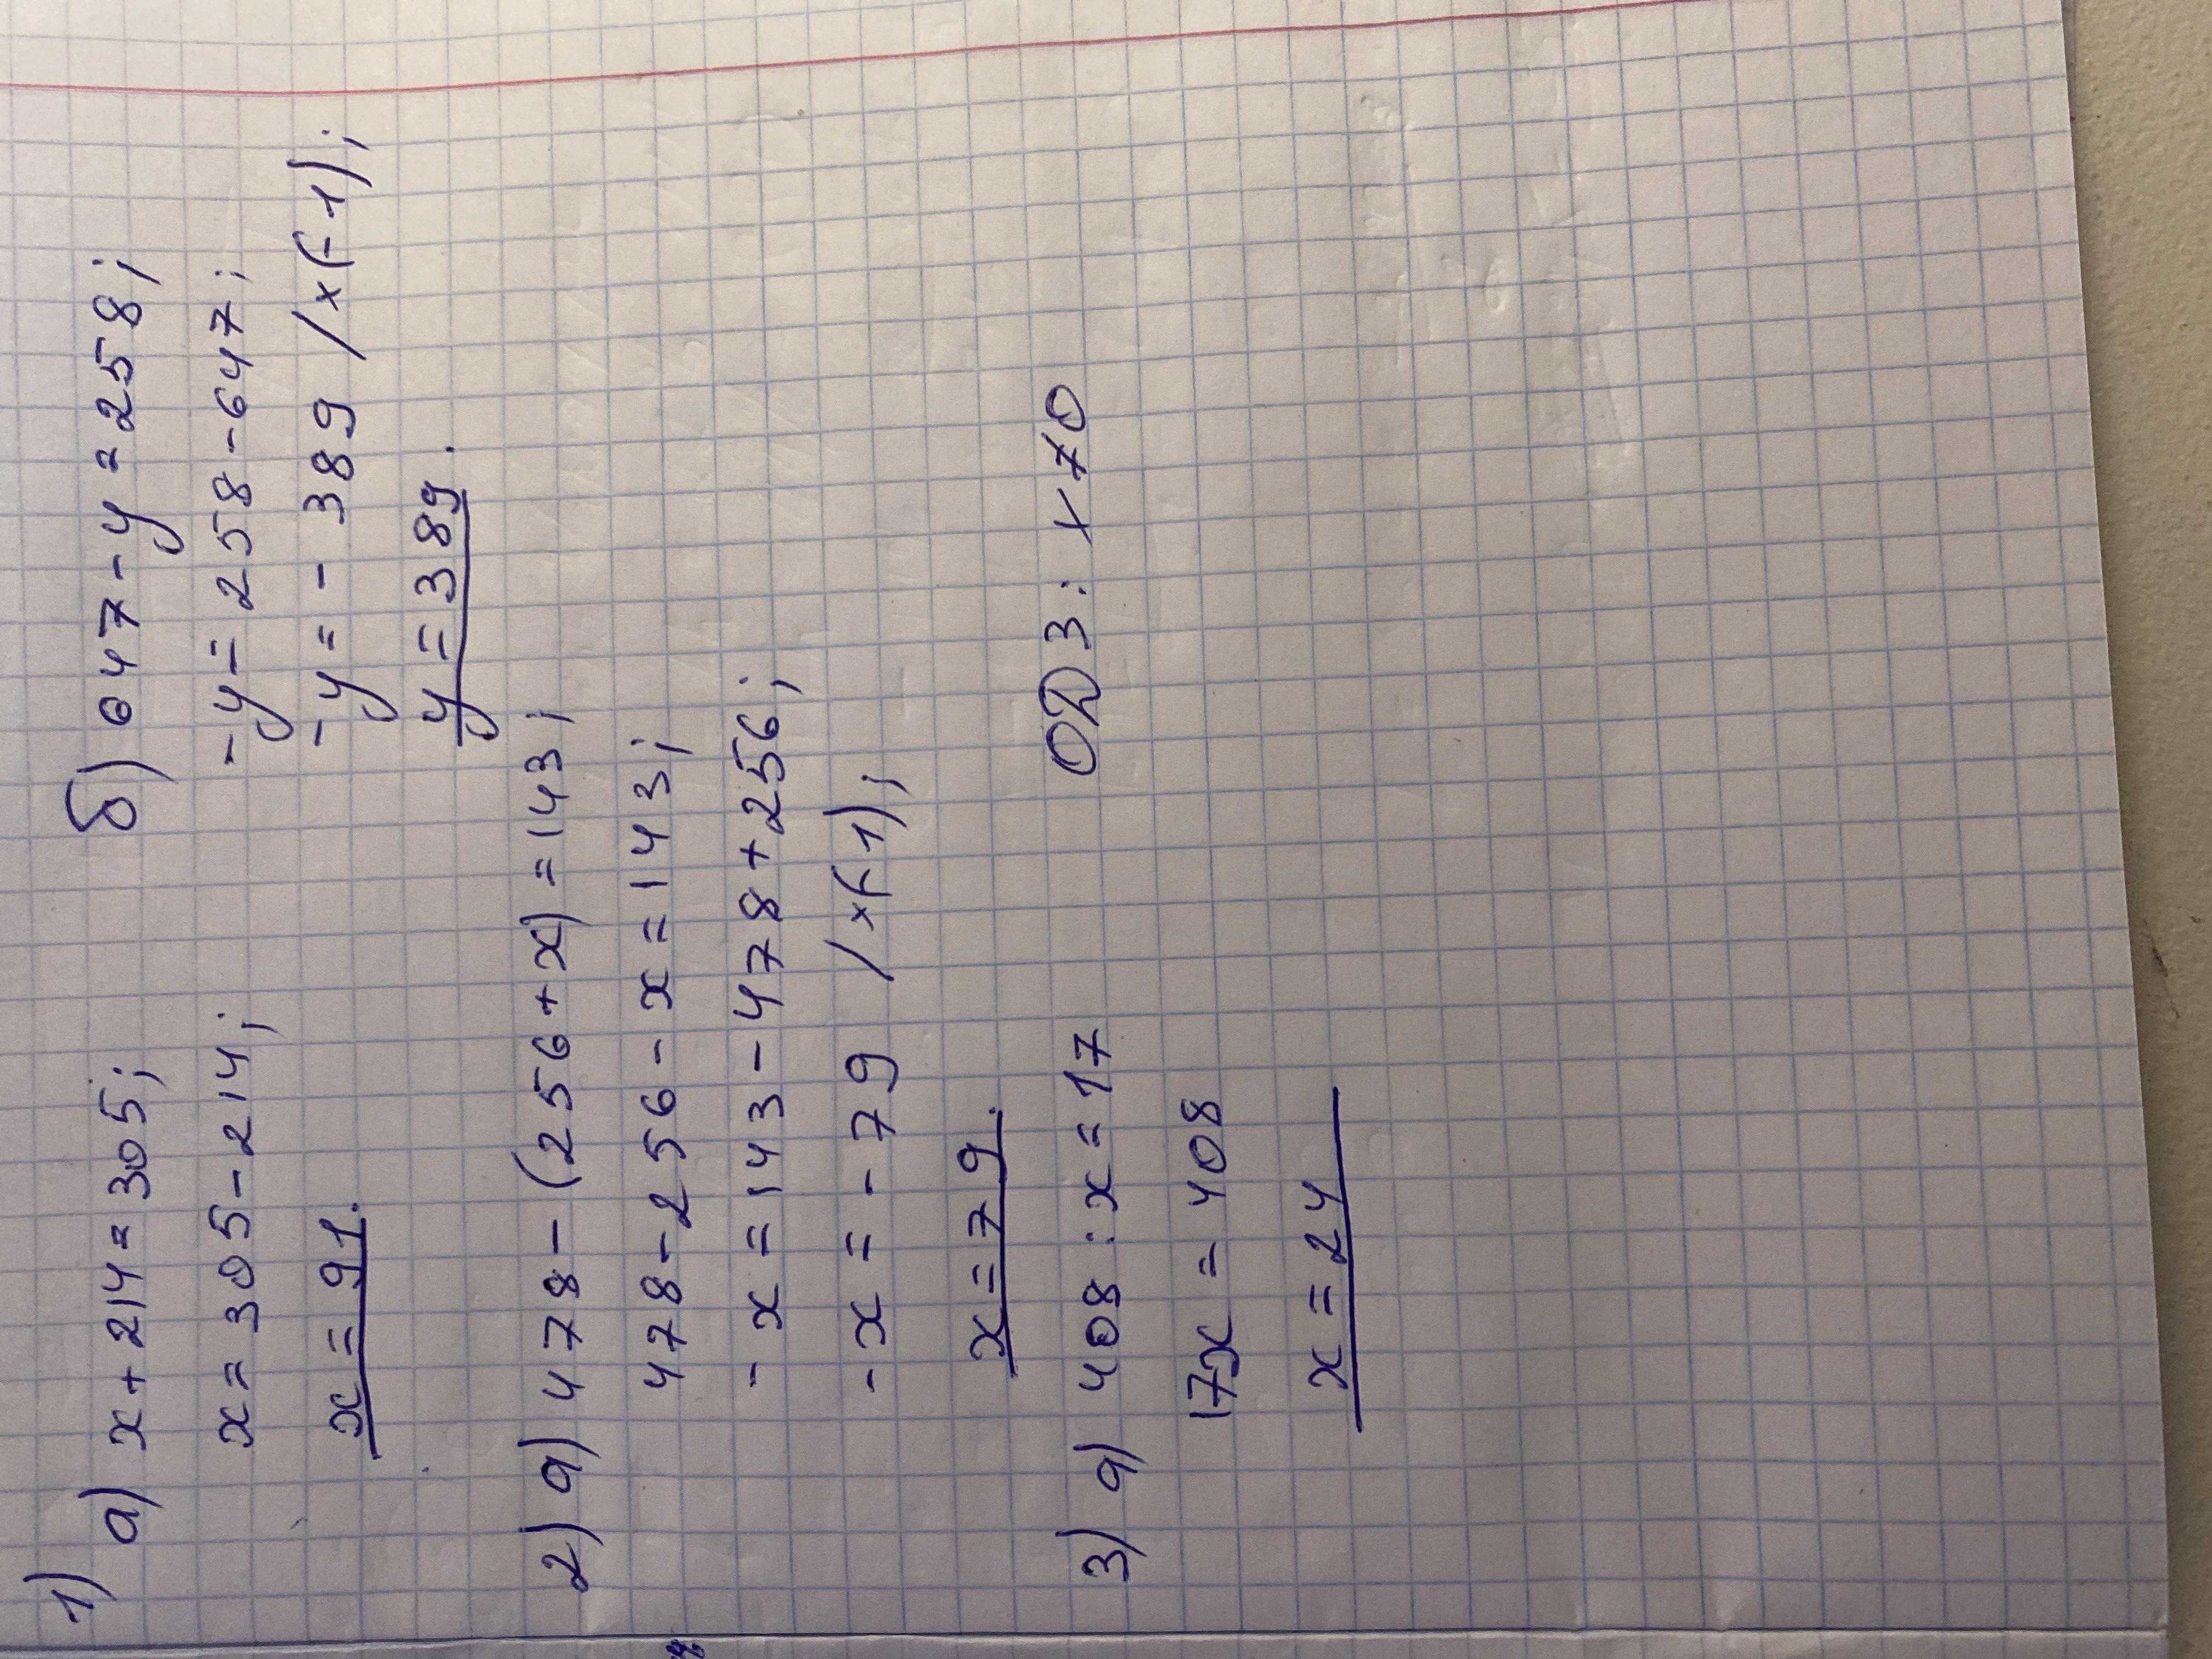 1) а) x + 214 = 305;
x = 305 - 214;
x = 91.
б) 647 - y = 258;
-y = 258 - 647;
-y = - 389 /×(-1);
y = 389.
2) а) 478 - (256 + x) = 143;
478 - 256 - x = 143;
- x = 143 - 478 + 256;
- x = - 79 /×(-1);
x = 79.
3) а) 408 : x = 17 ОДЗ: x ≠ 0
17x = 408
x = 24